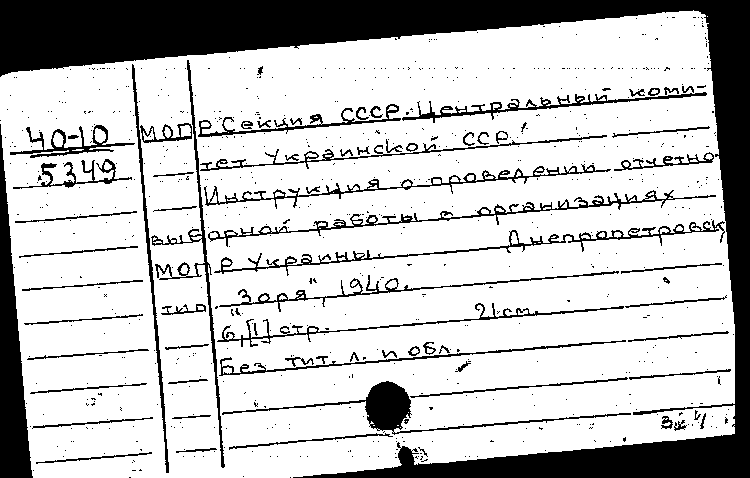 40-10
5349
МОПР. Секция СССР. Центральный коми-
тет Украинской ССР.
Инструкция о проведении отчетно-
выборной работы в организациях
МОПР Украины. Днепропетровск
тип. "Зоря", 1940.
6, [1] стр. 21 см.
Без тит. л. и обл.